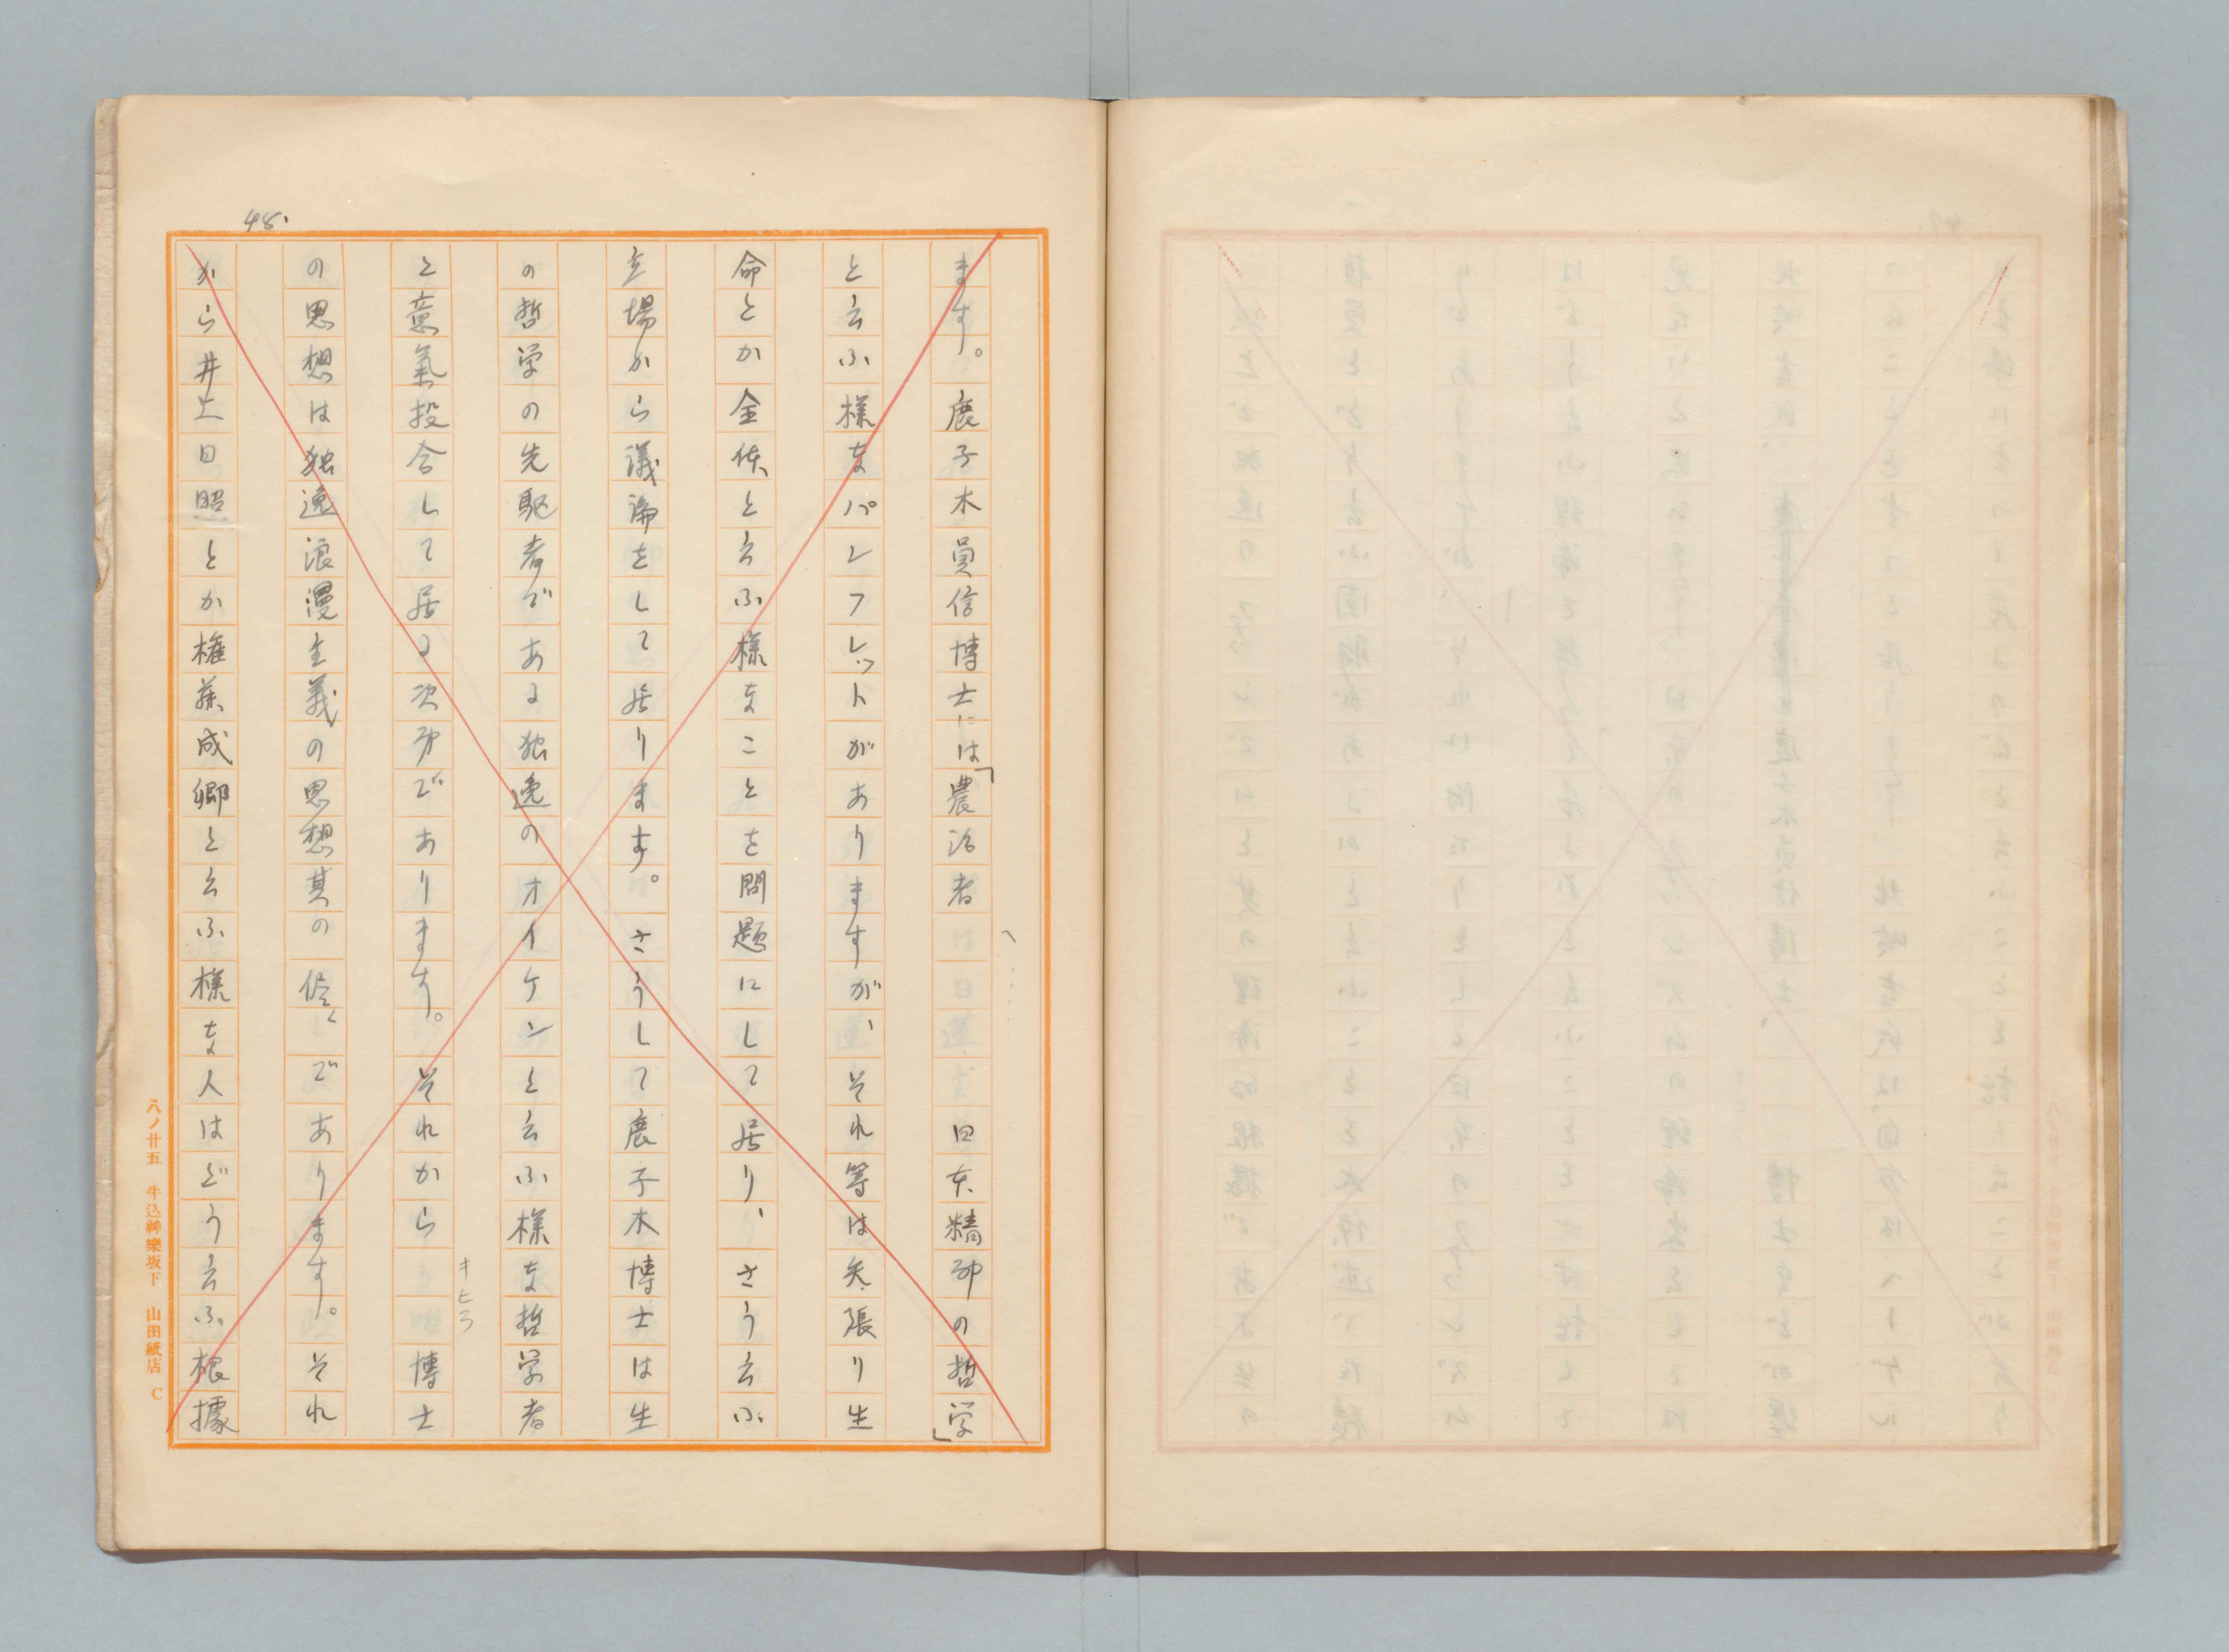 48.
ます。鹿子木員信博士には「農治者　　　　日本精神の哲学」
と云ふ様なパンフレットがありますが、それ等は矢張り生
命とか全体と云ふ様なことを問題にして居り、さう云ふ
立場から議論をして居ります。さうして鹿子木博士は生
の哲学の先駆者である独逸のオイケンと云ふ様な哲学者
と意氣投合して居る次第であります。それから　　博士
キヒラ
の思想は独逸浪漫主義の思想其の侭でであります。それ
から井上日昭とか権藤成卿と云ふ様な人はどう云ふ根據
八ノ廿五　牛込神樂坂下　山田紙店　C